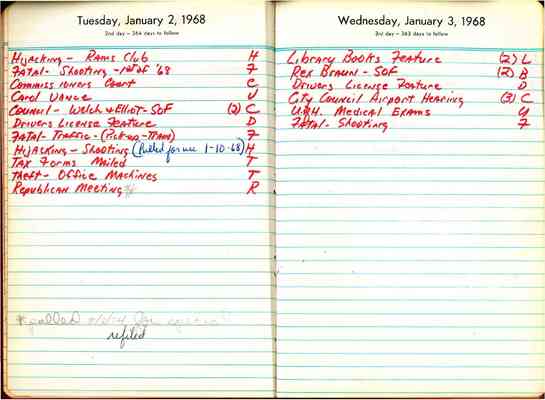 Tuesday, January 2, 1968
2nd day – 364 days to follow
Hijacking - Rams Club H
Fatal - Shooting - 1st of '68 F
Commissioners Court C
Carol Vance V
Council - Welch + Elliot - SoF (2) C
Drivers License Feature D
Fatal - Traffic - (Pick-up - Train) F
Hijacking - Shooting (Pulled for use 1-10-68) H
Tax Forms Mailed T
Theft - Office Machines T
Republican Meeting R
*pulled
refiled
Wednesday, January 3, 1968
3rd day – 363 days to follow
Library Books Feature (2) L
Rex Braun - SoF (2) B
Drivers License Feature D
City Council Airport Hearing (3) C
U.H. Medical Exams U
Fatal - Shooting F